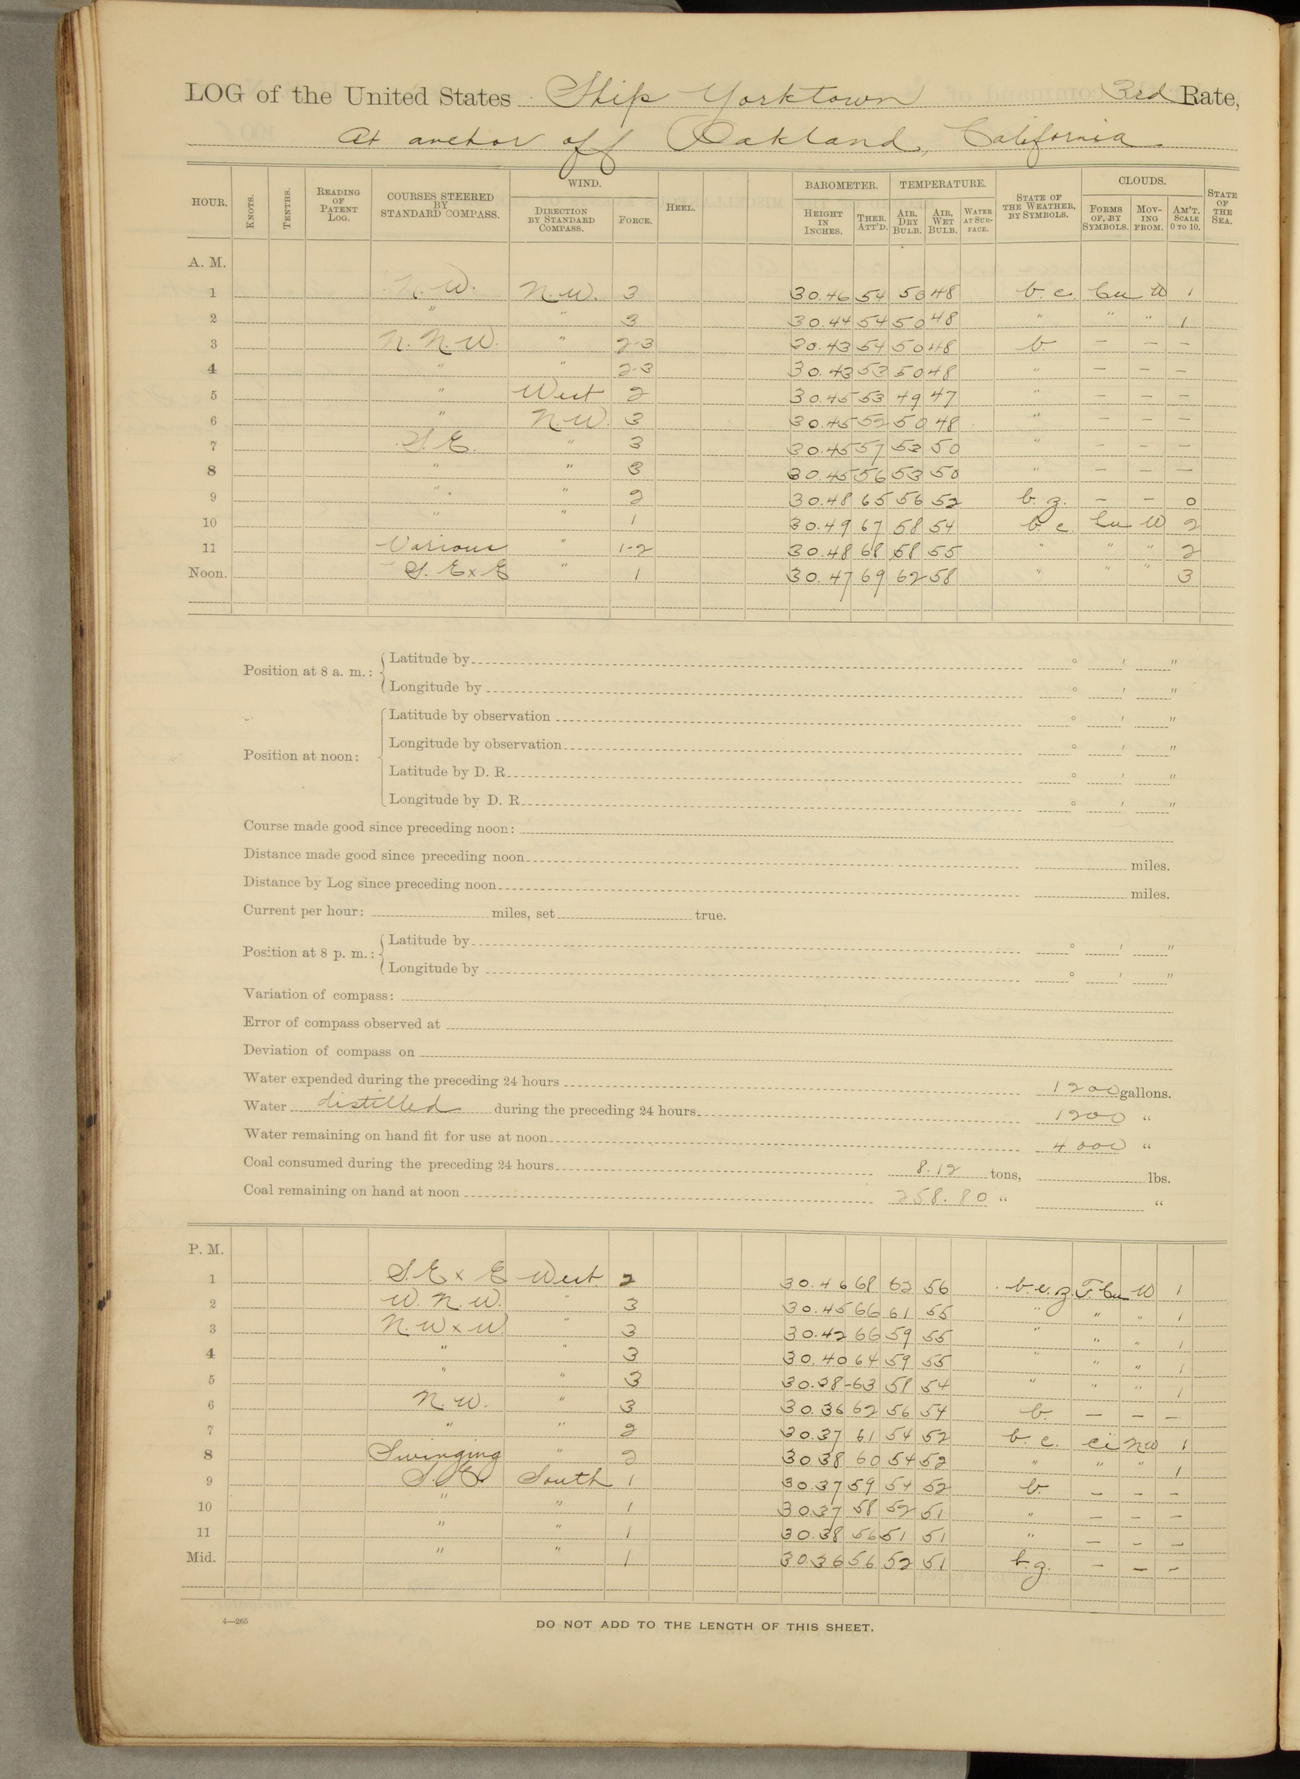 LOG of the United States Ship Yorktown 3rd Rate,
At anchor off Oakland, California.
HOUR. KNOTS. TENTHS. READING OF PATENT LOG. COURSES STEERED BY STANDARD COMPASS. WIND. DIRECTION BY STANDARD COMPASS. FORCE. HEEL. BAROMETER. HEIGHT IN INCHES. THER. ATT'D. TEMPERATURE. AIR, DRY BULB. AIR, WET BULB. WATER AT SURFACE. STATE OF THE WEATHER, BY SYMBOLS. CLOUDS. FORMS OF, BY SYMBOLS. MOVING FROM. AM'T. SCALE 0 TO 10. STATE OF THE SEA.
A. M.
1 N. W. N. W. 3 30.46 54 50 48 b. c. Cu W 1
2 " " 3 30.44 54 50 48 " " " 1
3 N. N. W. " 2-3 30.43 54 50 48 b. — — —
4 " " 2-3 30.43 53 50 48 " — — —
5 " West 2 30.45 53 49 47 " — — —
6 " N. W. 3 30.45 52 50 48 " — — —
7 S. E. " 3 30.45 57 53 50 " — — —
8 " " 3 30.45 56 53 50 " — — —
9 " " 2 30.48 65 56 52 b. z. — — 0
10 " " 1 30.49 67 58 54 b c. Cu W 2
11 Various " 1-2 30.48 68 58 55 " " " 2
Noon. S. E x E " 1 30.47 69 62 58 " " " 3
Position at 8 a. m.: Latitude by ° ′ ″
Longitude by ° ′ ″
Position at noon: Latitude by observation ° ′ ″
Longitude by observation ° ′ ″
Latitude by D. R. ° ′ ″
Longitude by D. R. ° ′ ″
Course made good since preceding noon:
Distance made good since preceding noon miles.
Distance by Log since preceding noon miles.
Current per hour: miles, set true.
Position at 8 p. m.: Latitude by ° ′ ″
Longitude by ° ′ ″
Variation of compass:
Error of compass observed at
Deviation of compass on
Water expended during the preceding 24 hours 1200 gallons.
Water distilled during the preceding 24 hours 1200 "
Water remaining on hand fit for use at noon 4000 "
Coal consumed during the preceding 24 hours 8.12 tons, lbs.
Coal remaining on hand at noon 258.80 " "
P. M.
1 S. E x E West 2 30.46 68 62 56 b. c. z F. Cu W 1
2 W. N. W. " 3 30.45 66 61 55 " " " 1
3 N. W x W. " 3 30.42 66 59 55 " " " 1
4 " " 3 30.40 64 59 55 " " " 1
5 " " 3 30.38 63 58 54 " " " 1
6 N. W. " 3 30.36 62 56 54 b. — — —
7 " " 2 30.37 61 54 52 b. c. ci NW 1
8 Swinging " 2 30.38 60 54 52 " " " 1
9 S. E. South 1 30.37 59 54 52 b. — — —
10 " " 1 30.37 58 52 51 " — — —
11 " " 1 30.38 56 51 51 " — — —
Mid. " " 1 30.36 56 52 51 b. z. — — —
4—265
DO NOT ADD TO THE LENGTH OF THIS SHEET.